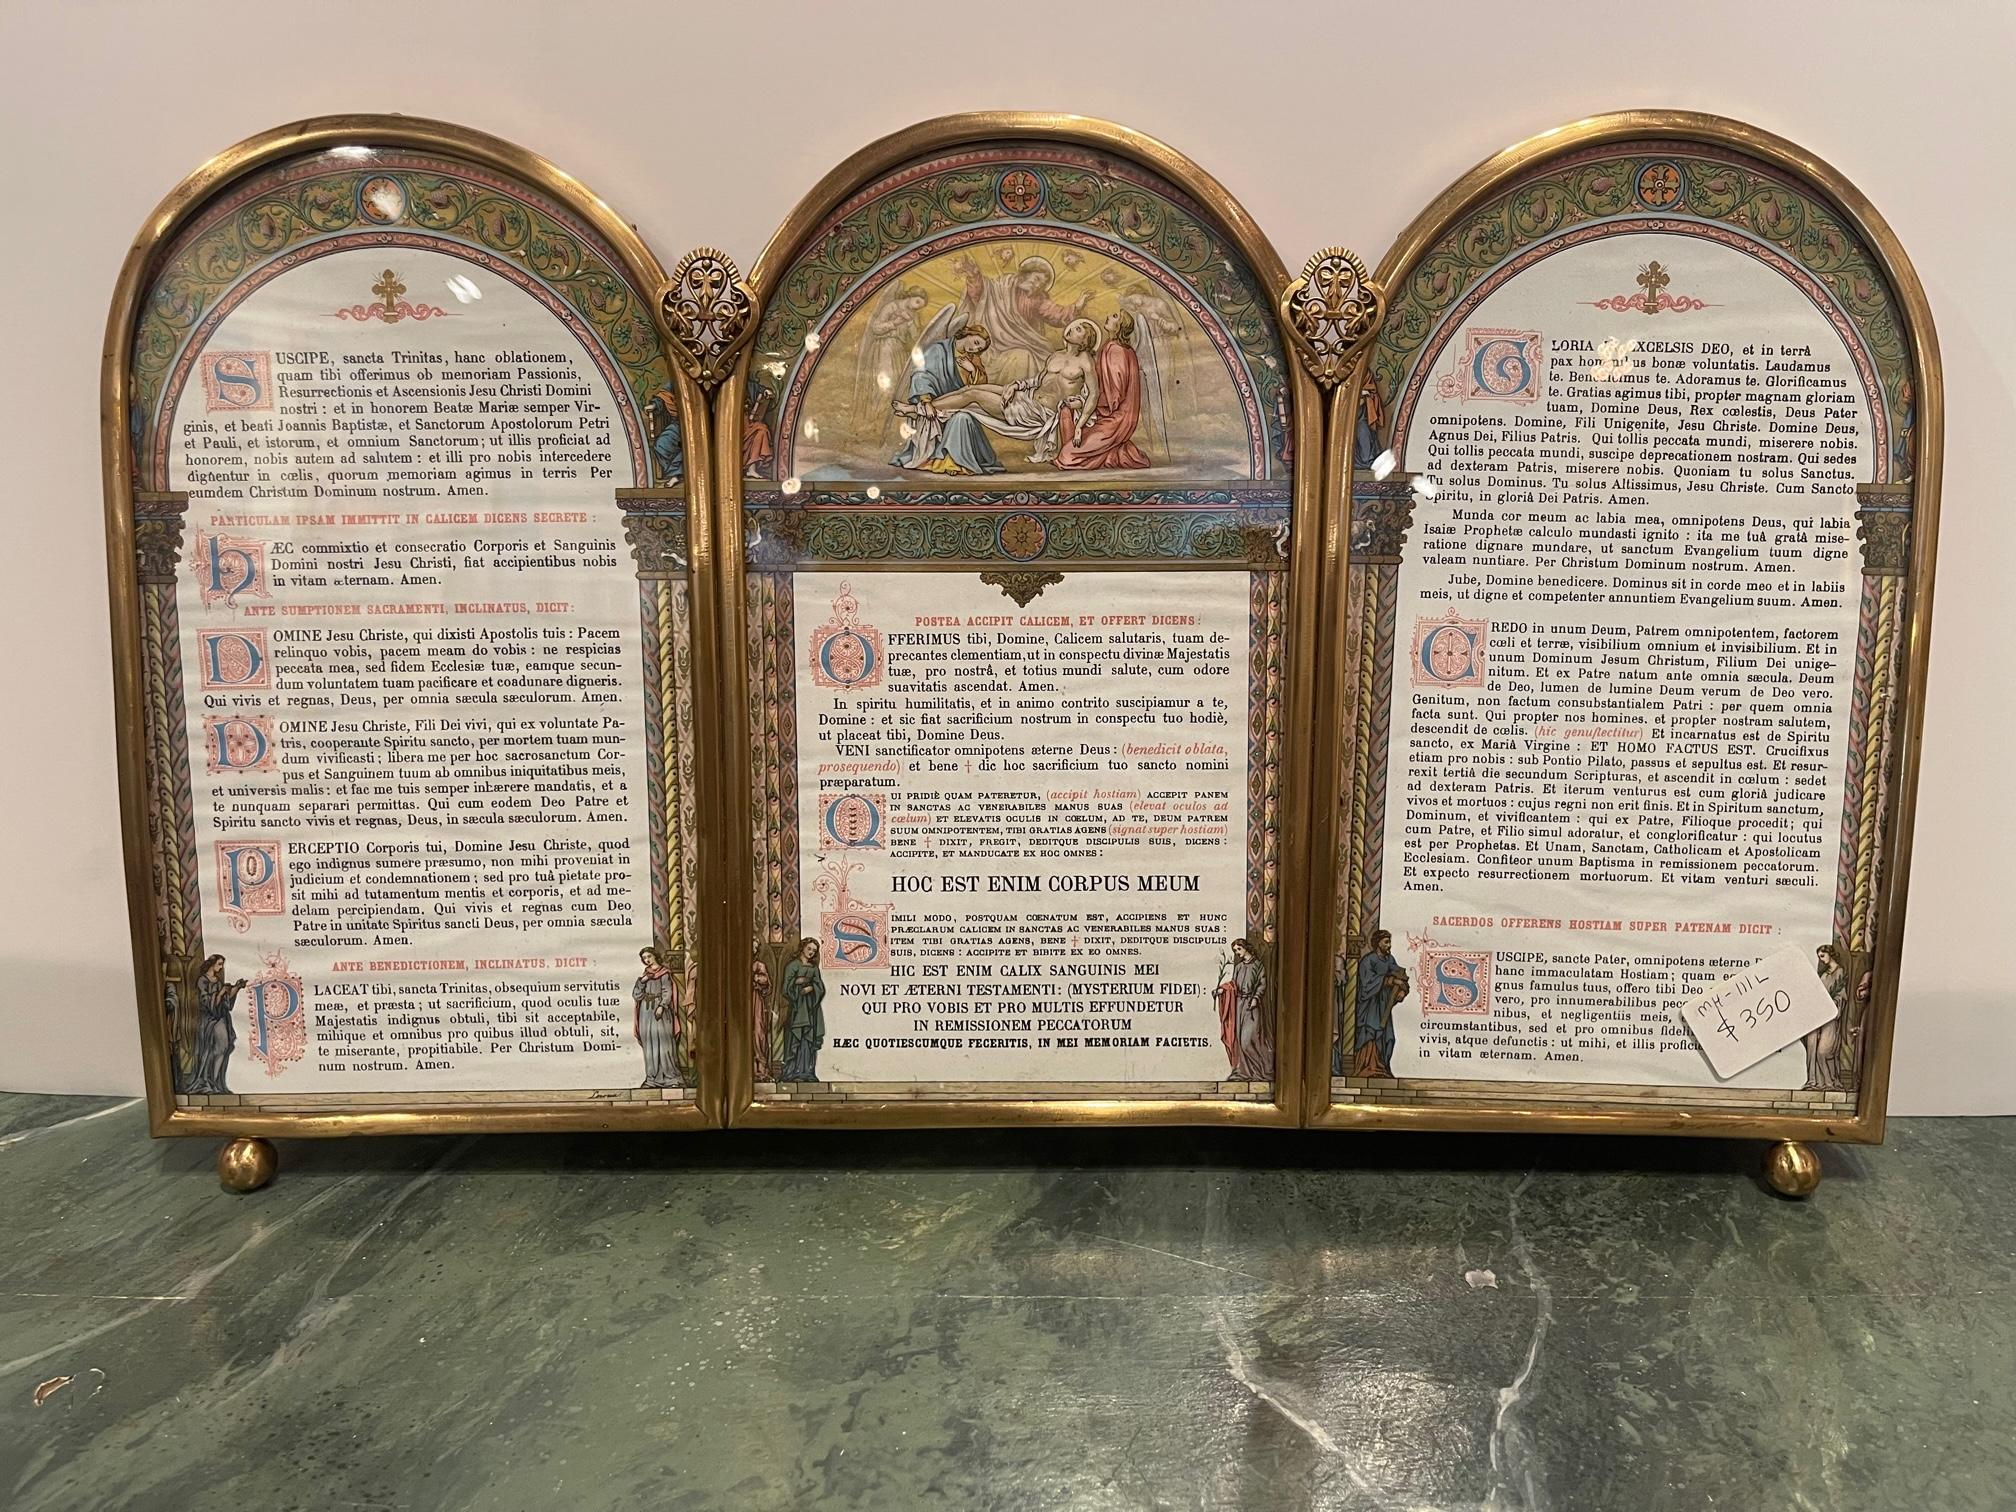 SUSCIPE, sancta Trinitas, hanc oblationem,
quam tibi offerimus ob memoriam Passionis,
Resurrectionis et Ascensionis Jesu Christi Domini
nostri : et in honorem Beatæ Mariæ semper Vir-
ginis, et beati Joannis Baptistæ, et Sanctorum Apostolorum Petri
et Pauli, et istorum, et omnium Sanctorum ; ut illis proficiat ad
honorem, nobis autem ad salutem : et illi pro nobis intercedere
dignentur in cœlis, quorum memoriam agimus in terris Per
eumdem Christum Dominum nostrum. Amen.
PARTICULAM IPSAM IMMITTIT IN CALICEM DICENS SECRETE :
HÆC commixtio et consecratio Corporis et Sanguinis
Domini nostri Jesu Christi, fiat accipientibus nobis
in vitam æternam. Amen.
ANTE SUMPTIONEM SACRAMENTI, INCLINATUS, DICIT :
DOMINE Jesu Christe, qui dixisti Apostolis tuis : Pacem
relinquo vobis, pacem meam do vobis : ne respicias
peccata mea, sed fidem Ecclesiæ tuæ, eamque secun-
dum voluntatem tuam pacificare et coadunare digneris.
Qui vivis et regnas, Deus, per omnia sæcula sæculorum. Amen.
DOMINE Jesu Christe, Fili Dei vivi, qui ex voluntate Pa-
tris, cooperante Spiritu sancto, per mortem tuam mun-
dum vivificasti ; libera me per hoc sacrosanctum Cor-
pus et Sanguinem tuum ab omnibus iniquitatibus meis,
et universis malis : et fac me tuis semper inhærere mandatis, et a
te nunquam separari permittas. Qui cum eodem Deo Patre et
Spiritu sancto vivis et regnas, Deus, in sæcula sæculorum. Amen.
PERCEPTIO Corporis tui, Domine Jesu Christe, quod
ego indignus sumere præsumo, non mihi proveniat in
judicium et condemnationem ; sed pro tuâ pietate pro-
sit mihi ad tutamentum mentis et corporis, et ad me-
delam percipiendam. Qui vivis et regnas cum Deo
Patre in unitate Spiritus sancti Deus, per omnia sæcula
sæculorum. Amen.
ANTE BENEDICTIONEM, INCLINATUS, DICIT :
PLACEAT tibi, sancta Trinitas, obsequium servitutis
meæ, et præsta ; ut sacrificium, quod oculis tuæ
Majestatis indignus obtuli, tibi sit acceptabile,
mihique et omnibus pro quibus illud obtuli, sit,
te miserante, propitiabile. Per Christum Domi-
num nostrum. Amen.
POSTEA ACCIPIT CALICEM, ET OFFERT DICENS :
OFFERIMUS tibi, Domine, Calicem salutaris, tuam de-
precantes clementiam, ut in conspectu divinæ Majestatis
tuæ, pro nostrâ, et totius mundi salute, cum odore
suavitatis ascendat. Amen.
In spiritu humilitatis, et in animo contrito suscipiamur a te,
Domine : et sic fiat sacrificium nostrum in conspectu tuo hodiè,
ut placeat tibi, Domine Deus.
VENI sanctificator omnipotens æterne Deus : (benedicit oblata,
prosequendo) et bene † dic hoc sacrificium tuo sancto nomini
præparatum.
QUI PRIDIÈ QUAM PATERETUR, (accipit hostiam) ACCEPIT PANEM
IN SANCTAS AC VENERABILES MANUS SUAS (elevat oculos ad
cœlum) ET ELEVATIS OCULIS IN CŒLUM, AD TE, DEUM PATREM
SUUM OMNIPOTENTEM, TIBI GRATIAS AGENS (signat super hostiam)
BENE † DIXIT, FREGIT, DEDITQUE DISCIPULIS SUIS, DICENS :
ACCIPITE, ET MANDUCATE EX HOC OMNES :
HOC EST ENIM CORPUS MEUM
SIMILI MODO, POSTQUAM CŒNATUM EST, ACCIPIENS ET HUNC
PRÆCLARUM CALICEM IN SANCTAS AC VENERABILES MANUS SUAS :
ITEM TIBI GRATIAS AGENS, BENE † DIXIT, DEDITQUE DISCIPULIS
SUIS, DICENS : ACCIPITE ET BIBITE EX EO OMNES.
HIC EST ENIM CALIX SANGUINIS MEI
NOVI ET ÆTERNI TESTAMENTI : (MYSTERIUM FIDEI) :
QUI PRO VOBIS ET PRO MULTIS EFFUNDETUR
IN REMISSIONEM PECCATORUM
HÆC QUOTIESCUMQUE FECERITIS, IN MEI MEMORIAM FACIETIS.
GLORIA EXCELSIS DEO, et in terrâ
pax hominibus bonæ voluntatis. Laudamus
te. Benedicimus te. Adoramus te. Glorificamus
te. Gratias agimus tibi, propter magnam gloriam
tuam, Domine Deus, Rex cœlestis, Deus Pater
omnipotens. Domine, Fili Unigenite, Jesu Christe. Domine Deus,
Agnus Dei, Filius Patris. Qui tollis peccata mundi, miserere nobis.
Qui tollis peccata mundi, suscipe deprecationem nostram. Qui sedes
ad dexteram Patris, miserere nobis. Quoniam tu solus Sanctus.
Tu solus Dominus. Tu solus Altissimus, Jesu Christe. Cum Sancto
Spiritu, in gloriâ Dei Patris. Amen.
Munda cor meum ac labia mea, omnipotens Deus, qui labia
Isaiæ Prophetæ calculo mundasti ignito : ita me tuâ gratâ mise-
ratione dignare mundare, ut sanctum Evangelium tuum digne
valeam nuntiare. Per Christum Dominum nostrum. Amen.
Jube, Domine benedicere. Dominus sit in corde meo et in labiis
meis, ut digne et competenter annuntiem Evangelium suum. Amen.
CREDO in unum Deum, Patrem omnipotentem, factorem
cœli et terræ, visibilium omnium et invisibilium. Et in
unum Dominum Jesum Christum, Filium Dei unige-
nitum. Et ex Patre natum ante omnia sæcula. Deum
de Deo, lumen de lumine Deum verum de Deo vero.
Genitum, non factum consubstantialem Patri : per quem omnia
facta sunt. Qui propter nos homines, et propter nostram salutem,
descendit de cœlis. (hic genuflectitur) Et incarnatus est de Spiritu
sancto, ex Mariâ Virgine : ET HOMO FACTUS EST. Crucifixus
etiam pro nobis : sub Pontio Pilato, passus et sepultus est. Et resur-
rexit tertiâ die secundum Scripturas, et ascendit in cœlum : sedet
ad dexteram Patris. Et iterum venturus est cum gloriâ judicare
vivos et mortuos : cujus regni non erit finis. Et in Spiritum sanctum,
Dominum, et vivificantem : qui ex Patre, Filioque procedit ; qui
cum Patre, et Filio simul adoratur, et conglorificatur : qui locutus
est per Prophetas. Et Unam, Sanctam, Catholicam et Apostolicam
Ecclesiam. Confiteor unum Baptisma in remissionem peccatorum.
Et expecto resurrectionem mortuorum. Et vitam venturi sæculi.
Amen.
SACERDOS OFFERENS HOSTIAM SUPER PATENAM DICIT :
SUSCIPE, sancte Pater, omnipotens æterne
hanc immaculatam Hostiam ; quam
gnus famulus tuus, offero tibi Deo
vero, pro innumerabilibus
nibus, et negligentiis meis,
circumstantibus, sed et pro omnibus
vivis, atque defunctis : ut mihi, et illis
in vitam æternam. Amen.
MH-111L
$350